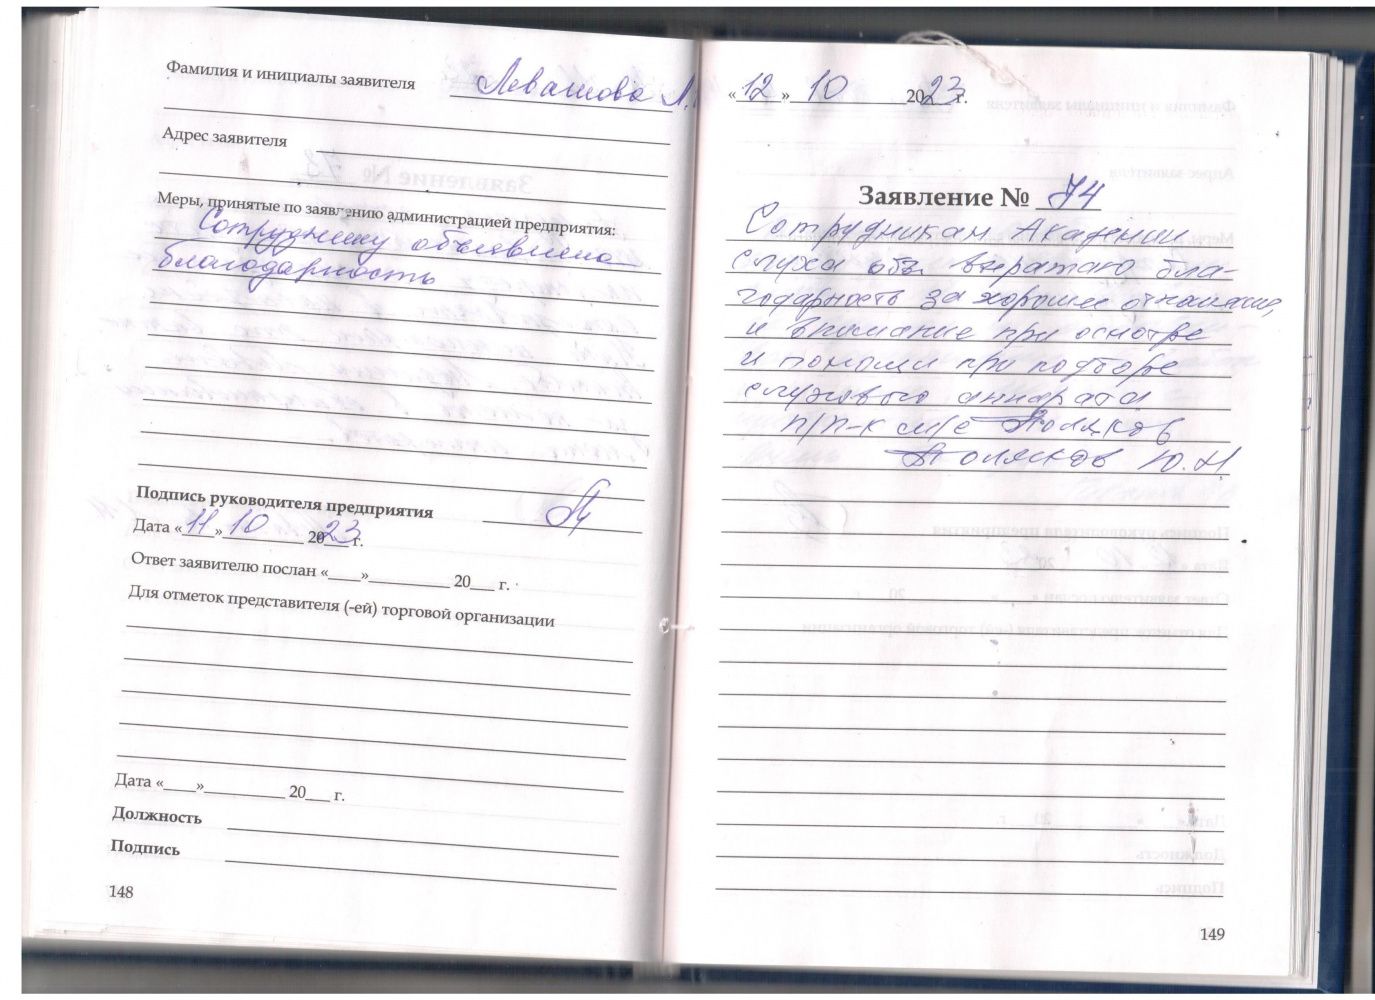 Фамилия и инициалы заявителя Левашова Л.
Адрес заявителя
Меры, принятые по заявлению администрацией предприятия:
Сотруднику объявлена
благодарность
Подпись руководителя предприятия
Дата «11» 10 2023 г.
Ответ заявителю послан «____»__________ 20___ г.
Для отметок представителя (-ей) торговой организации
Дата «____»__________ 20___ г.
Должность
Подпись
148
«12» 10 2023 г.
Заявление № 74
Сотрудникам Академии
слуха выражаю бла-
годарность за хорошее отношение,
и внимание при осмотре
и помощи при подборе
слухового аппарата
п/п-к м/с Поляков
Поляков Ю.Н.
149